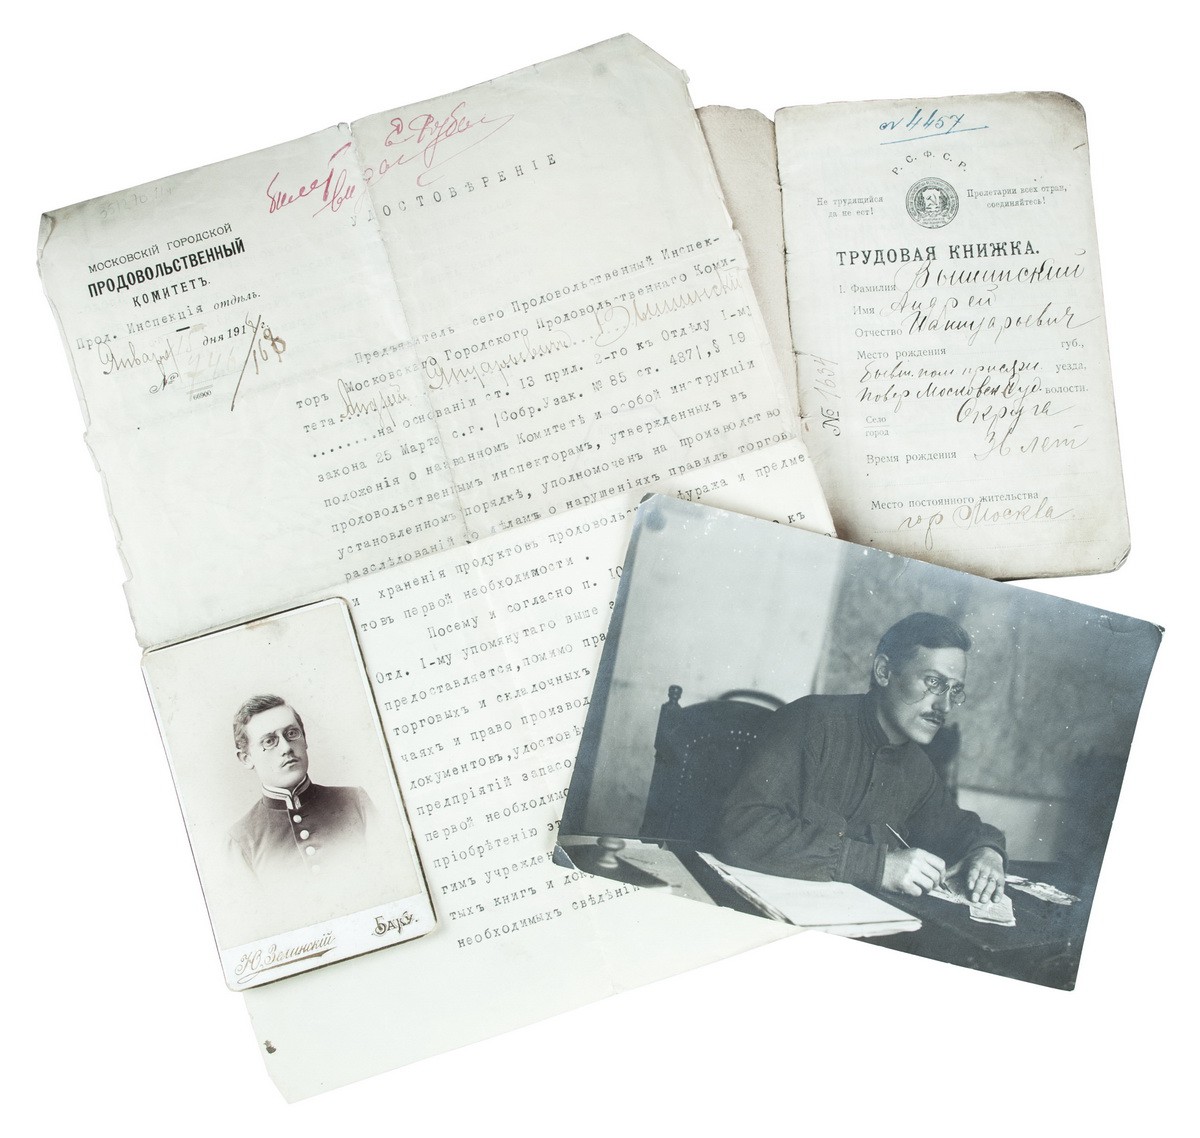 УДОСТОВѢРЕНІЕ
МОСКОВСКІЙ ГОРОДСКОЙ
ПРОДОВОЛЬСТВЕННЫЙ
КОМИТЕТЪ.
Прод. Инспекція отдѣлъ.
дня 191
№
Предъявитель сего Продовольственный Инспек-
торъ Московскаго Городского Продовольственнаго Коми-
тета Андрей Януарьевич Вышинский
на основаніи ст. 13 прил. 2-го къ Отдѣлу I-му
закона 25 Марта с.г. /Собр.Узак. № 85 ст. 487/, § 19
положенія о названномъ Комитетѣ и особой инструкціи
продовольственнымъ инспекторамъ, утвержденныхъ въ
установленномъ порядкѣ, уполномоченъ на производство
разслѣдованій по дѣламъ о нарушеніяхъ правилъ торгов
и храненія продуктовъ продовольст фуража и предме
товъ первой необходимости.
Посему и согласно п. 10 къ
Отд. I-му упомянутаго выше з
предоставляется, помимо пра
торговыхъ и складочныхъ
чаяхъ и право производ
документовъ, удостовѣ
предпріятій запасо
первой необходимо
пріобрѣтенію эт
гимъ учрежден
тыхъ книгъ и доку
необходимыхъ свѣдѣні
Р. С. Ф. С. Р.
Не трудящийся
да не ест!
Пролетарии всех стран,
соединяйтесь!
ТРУДОВАЯ КНИЖКА.
1. Фамилия Вышинский
Имя Андрей
Отчество Януарьевич
Место рождения губ.,
Бывш. пом. присяжн. уезда,
повер. Московск. Суд. волости.
Село
город Округа
Время рождения 36 лет
Место постоянного жительства
гор. Москва.
Ю. Зелинскій
Баку.